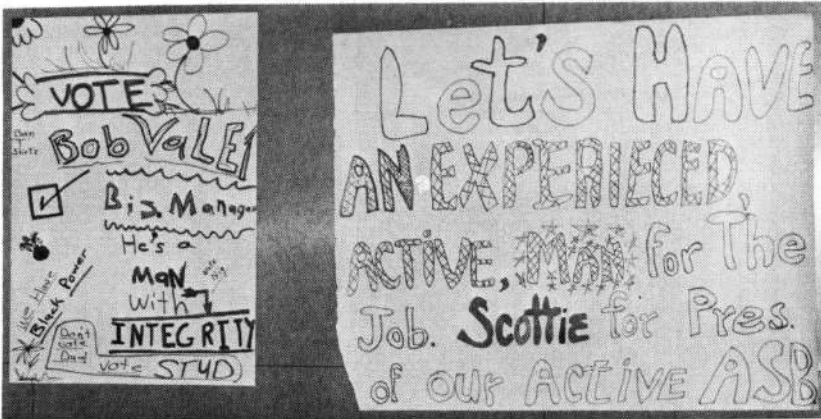 VOTE
Bob VALE
Biz. Manager
He's a
MAN
With
INTEGRITY
We Have
Black Power
Don't
Vote
Dad
vote STUD
Let's HAVE
AN EXPERIECED,
ACTIVE, MAN for The
Job. Scottie for Pres.
of our Active ASB